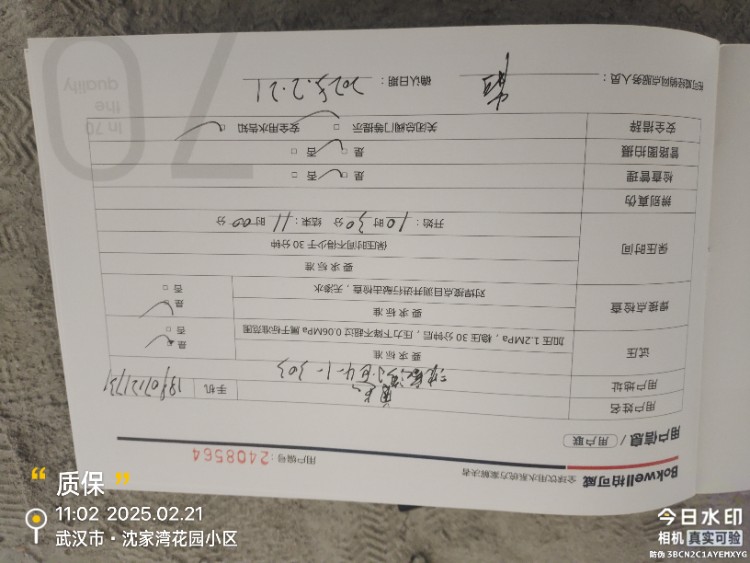 Bokwell柏可威
全球饮用水系统方案解决者
用户编号：2408564
用户信息 / 用户联
用户姓名
手机
用户地址 4-1-303
试压 要求标准
加压1.2MPa，稳压30分钟后，压力下降不超过0.06MPa属于标准范围
是
否
焊接点检查 要求标准
对焊接点目测并进行敲击检查，无渗水
是
否
保压时间 要求标准
保压时间不得少于30分钟
开始：10时30分 结束：11时00分
辨别真伪
检查管理 是 否
管路图拍摄 是 否
安全措辞 关闭总阀门等提示 安全用水告知
服务人员：
确认日期：2025.2.21
In 70
the
quality
70
质保
11:02 2025.02.21
武汉市·沈家湾花园小区
今日水印
相机 真实可验
防伪 3BCN2C1AYEMXYG